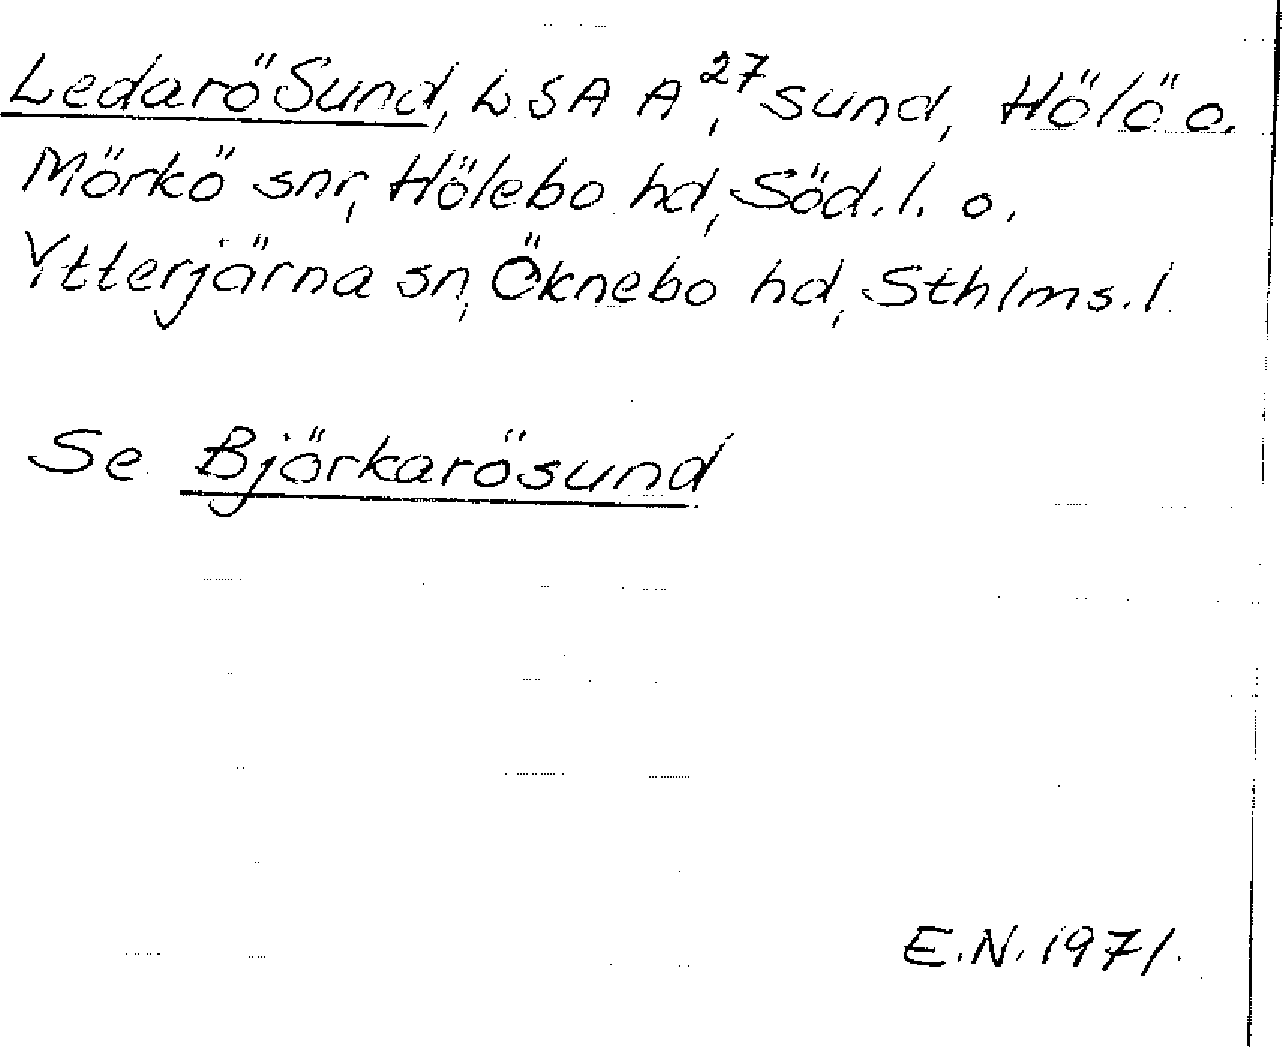 Ledarö Sund, LSA A²⁷, sund, Hölö o.
Mörkö snr, Hölebo hd, Söd.l. o.
Ytterjärna sn, Öknebo hd, Sthlms.l.
Se Björkarösund
E.N. 1971.